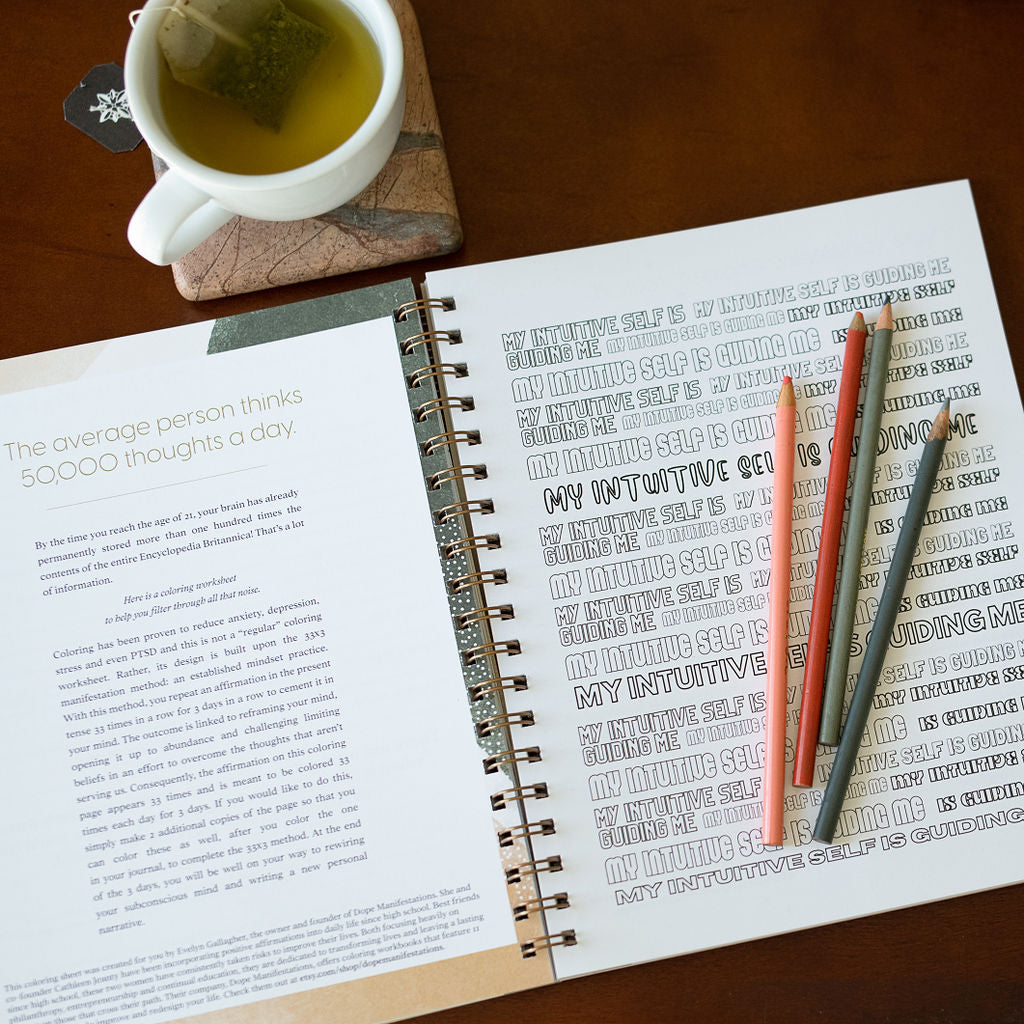 The average person thinks
50,000 thoughts a day.
By the time you reach the age of 21, your brain has already
permanently stored more than one hundred times the
contents of the entire Encyclopedia Britannica! That's a lot
of information.
Here is a coloring worksheet
to help you filter through all that noise.
Coloring has been proven to reduce anxiety, depression,
stress and even PTSD and this is not a “regular” coloring
worksheet. Rather, its design is built upon the 33x3
manifestation method: an established mindset practice.
With this method, you repeat an affirmation in the present
tense 33 times in a row for 3 days in a row to cement it in
your mind. The outcome is linked to reframing your mind,
opening it up to abundance and challenging limiting
beliefs in an effort to overcome the thoughts that aren't
serving us. Consequently, the affirmation on this coloring
page appears 33 times and is meant to be colored 33
times each day for 3 days. If you would like to do this,
simply make 2 additional copies of the page so that you
can color these as well, after you color the one
in your journal, to complete the 33x3 method. At the end
of the 3 days, you will be well on your way to rewiring
your subconscious mind and writing a new personal
narrative.
This coloring sheet was created for you by Evelyn Gallagher, the owner and founder of Dope Manifestations. She and
co-founder Cathleen Jeanty have been incorporating positive affirmations into daily life since high school. Best friends
since high school, these two women have consistently taken risks to improve their lives. Both focusing heavily on
philanthropy, entrepreneurship and continual education, they are dedicated to transforming lives and leaving a lasting
on those that cross their path. Their company, Dope Manifestations, offers coloring workbooks that feature 11
improve and redesign your life. Check them out at etsy.com/shop/dopemanifestations.
MY INTUITIVE SELF IS MY INTUITIVE SELF IS GUIDING ME
GUIDING ME MY INTUITIVE SELF IS GUIDING ME MY INTUITIVE SELF
MY INTUITIVE SELF IS GUIDING ME IS GUIDING ME
MY INTUITIVE SELF IS MY INTUITIVE GUIDING ME
GUIDING ME MY INTUITIVE SELF IS GUIDING ME MY INTUITIVE SELF
MY INTUITIVE SELF IS GUIDING ME IS GUIDING ME
MY INTUITIVE SELF IS GUIDING ME
MY INTUITIVE SELF IS MY GUIDING ME
GUIDING ME MY INTUITIVE SELF IS INTUITIVE SELF
MY INTUITIVE SELF IS GUIDING ME IS GUIDING ME
MY INTUITIVE SELF IS MY GUIDING ME
GUIDING ME MY INTUITIVE SELF IS INTUITIVE SELF
MY INTUITIVE SELF IS GUIDING ME IS GUIDING ME
MY INTUITIVE SELF IS GUIDING ME
MY INTUITIVE SELF IS MY SELF IS GUIDING
GUIDING ME MY INTUITIVE SELF IS MY INTUITIVE SELF
MY INTUITIVE SELF IS GUIDING ME IS GUIDING
MY INTUITIVE SELF IS MY INTUITIVE SELF IS GUIDING
GUIDING ME MY INTUITIVE SELF IS GUIDING ME MY INTUITIVE SELF
MY INTUITIVE SELF IS GUIDING ME IS GUIDING
MY INTUITIVE SELF IS GUIDING